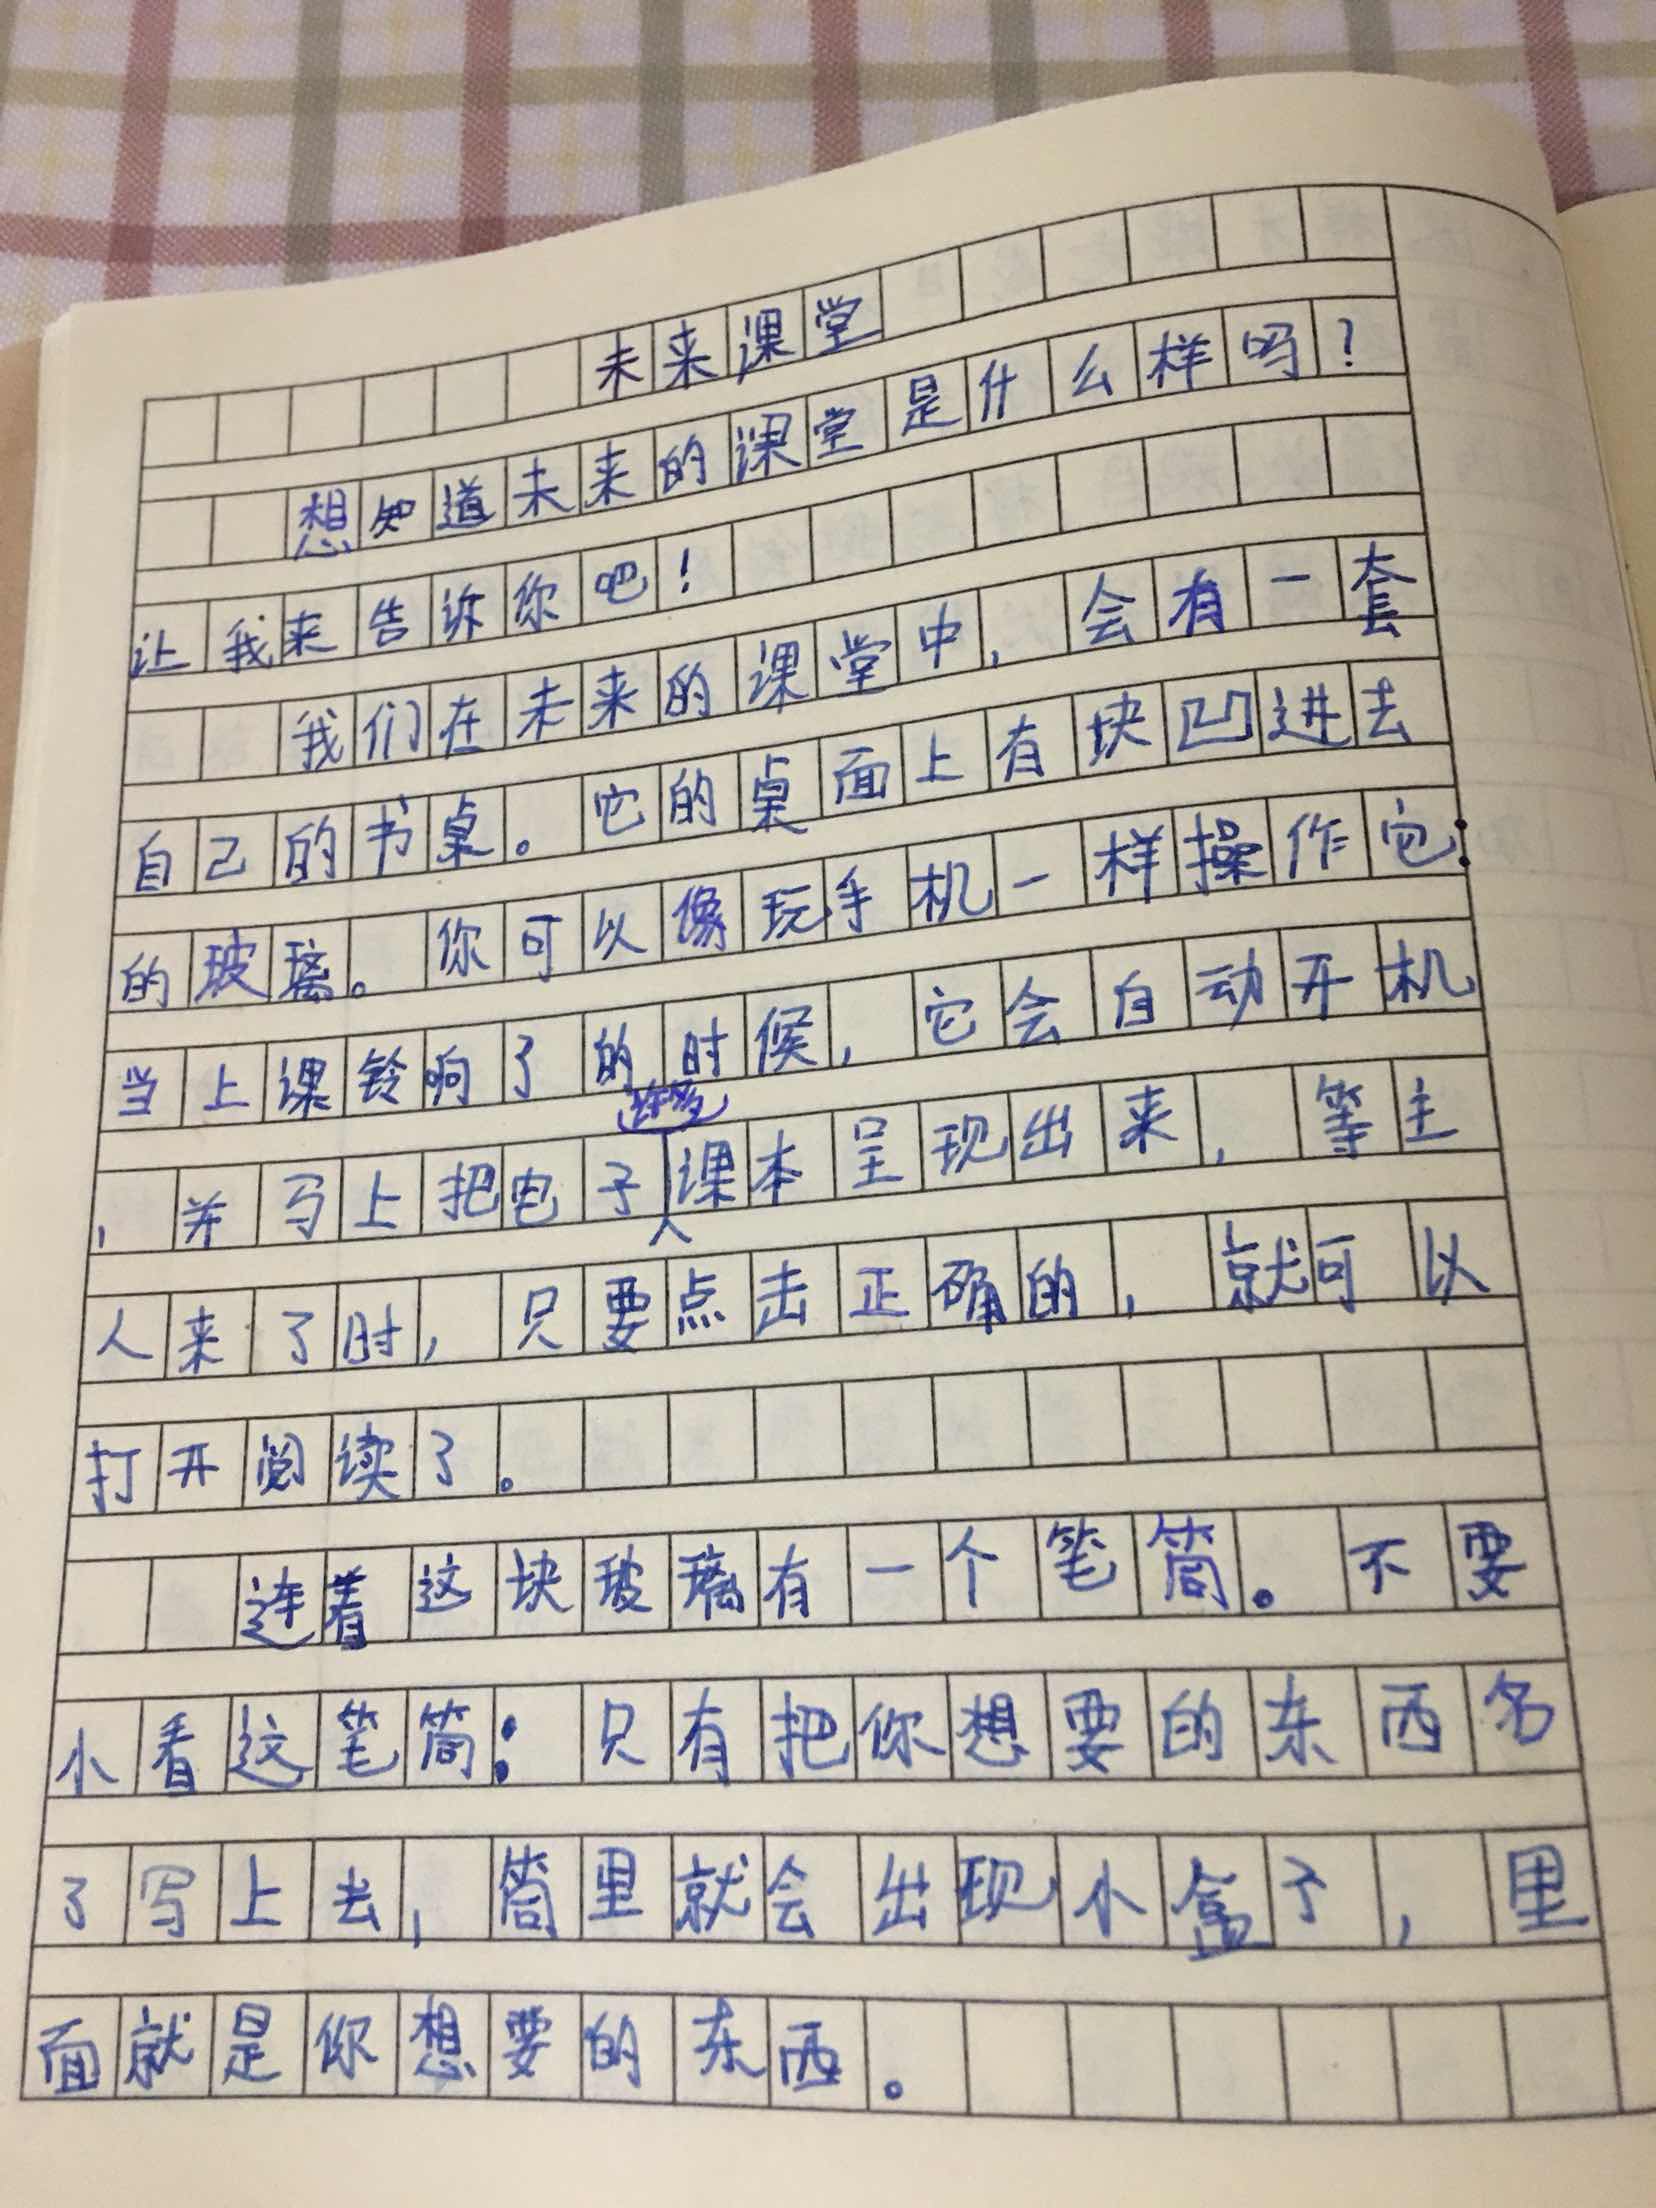 未来课堂
想知道未来的课堂是什么样吗?
让我来告诉你吧!
我们在未来的课堂中,会有一套
自己的书桌。它的桌面上有块凹进去
的玻璃。你可以像玩手机一样操作它:
当上课铃响了的时候,它会自动开机
许多
,并马上把电子课本呈现出来,等主
人来了时,只要点击正确的,就可以
打开阅读了。
连着这块玻璃有一个笔筒。不要
小看这笔筒:只有把你想要的东西名
了写上去,筒里就会出现小盒子,里
面就是你想要的东西。